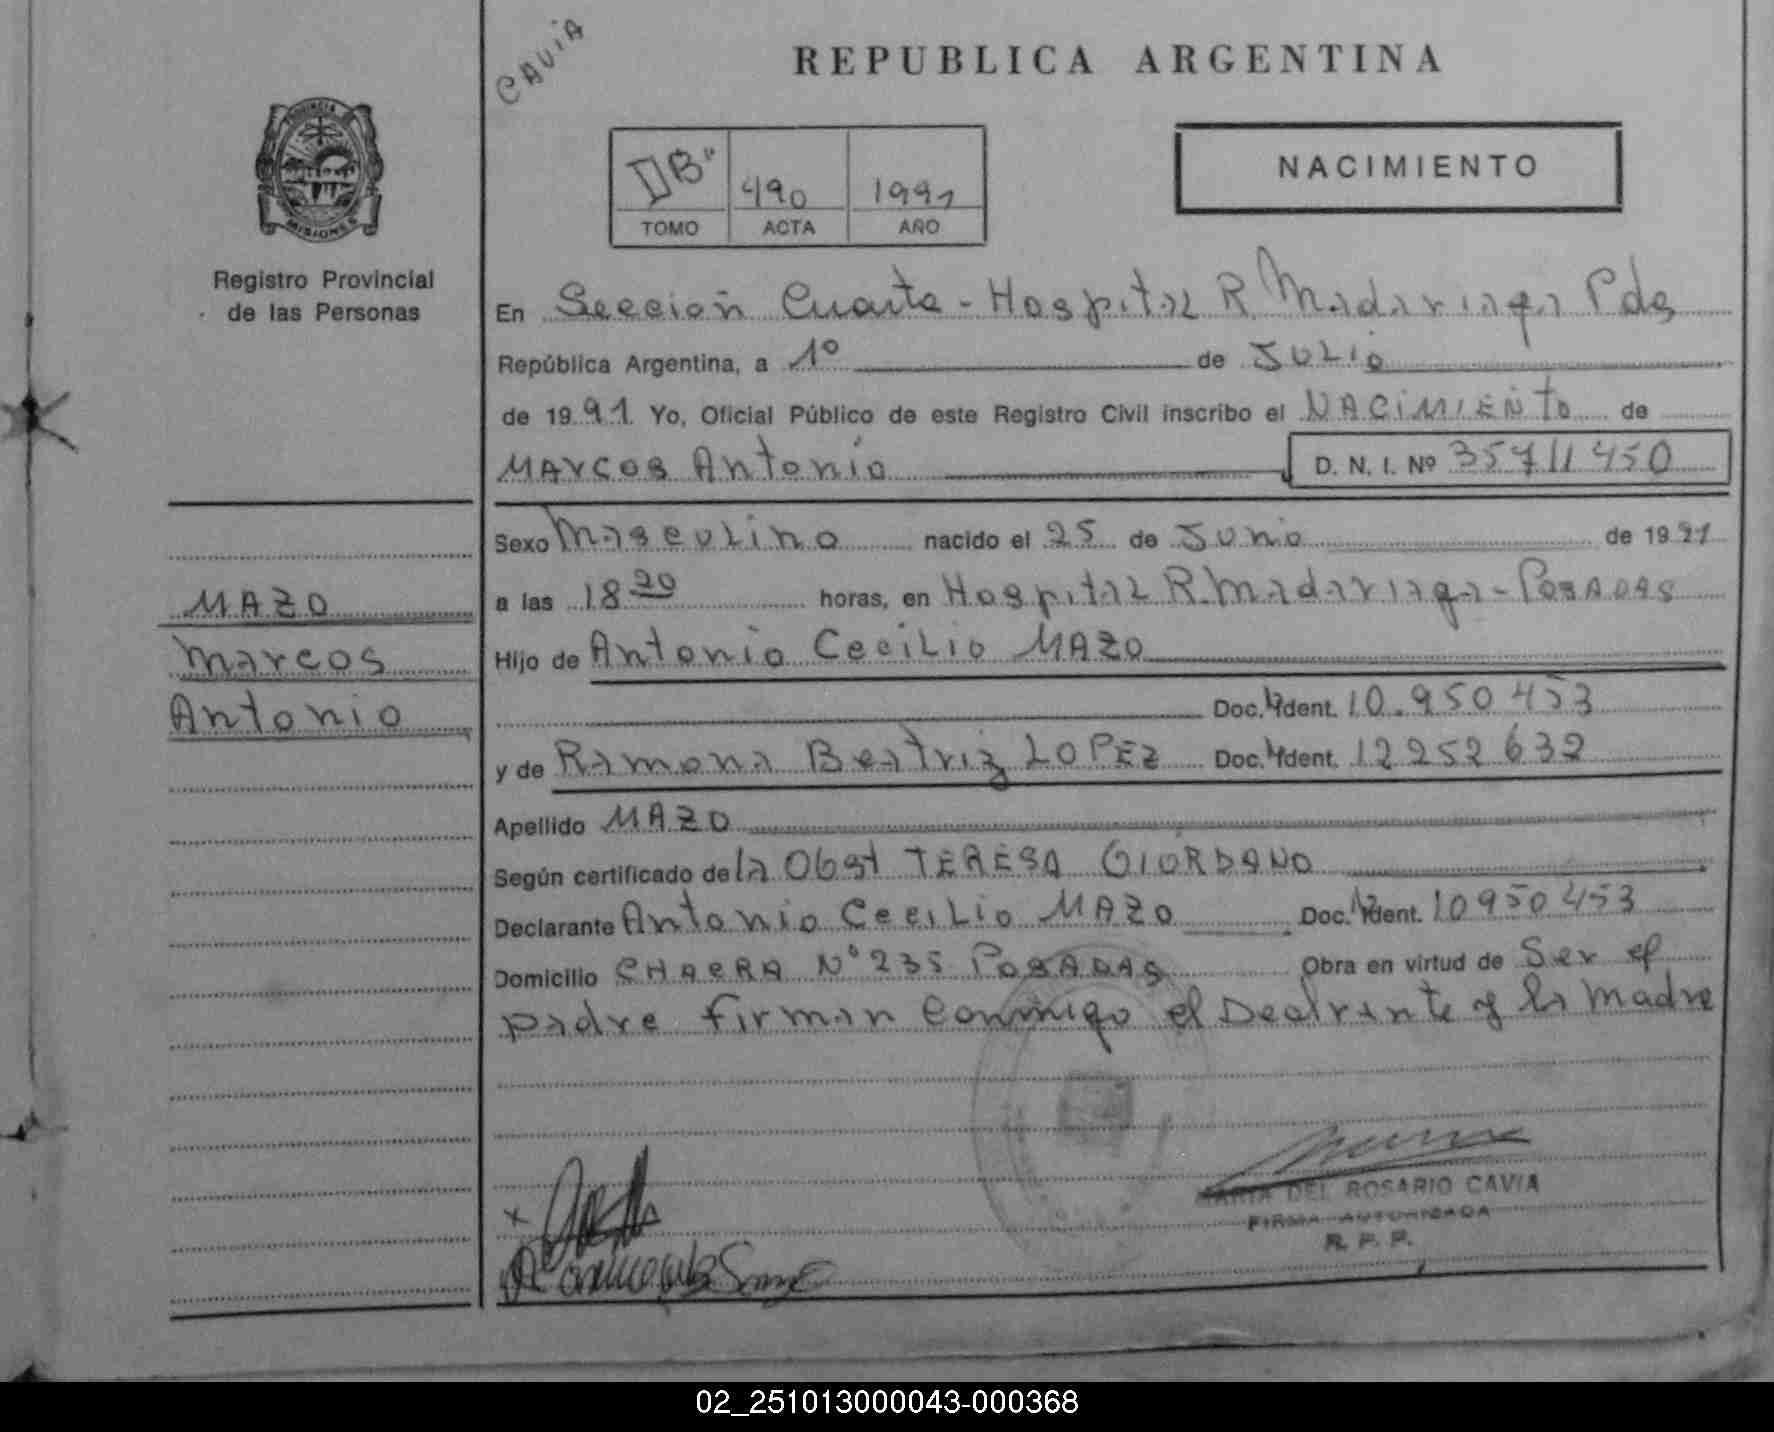 CAVIA
REPUBLICA ARGENTINA
PROVINCIA
MISIONES
Registro Provincial
de las Personas
II B" 490 1991
TOMO ACTA AÑO
NACIMIENTO
En Sección Cuarta - Hospital R Madariaga Pdas
República Argentina, a 1º de Julio
de 1991 Yo, Oficial Público de este Registro Civil inscribo el NACIMIENTO de
Marcos Antonio D. N. I. Nº 35711450
Sexo Masculino nacido el 25 de Junio de 1991
MAZO
a las 18 20 horas, en Hospital R. Madariaga - POSADAS
Marcos
Hijo de Antonio Cecilio MAZO
Antonio
Doc. Ident. 10.950453
y de Ramona Beatriz LOPEZ Doc. Ident. 12252632
Apellido MAZO
Según certificado de la Obst TERESA GIORDANO
Declarante Antonio Cecilio MAZO Doc. Ident. 10950453
Domicilio CHACRA Nº 235 POSADAS Obra en virtud de Ser el
padre firman conmigo el Declarante y la Madre
MARIA DEL ROSARIO CAVIA
FIRMA AUTORIZADA
R. P. P.
02_251013000043-000368